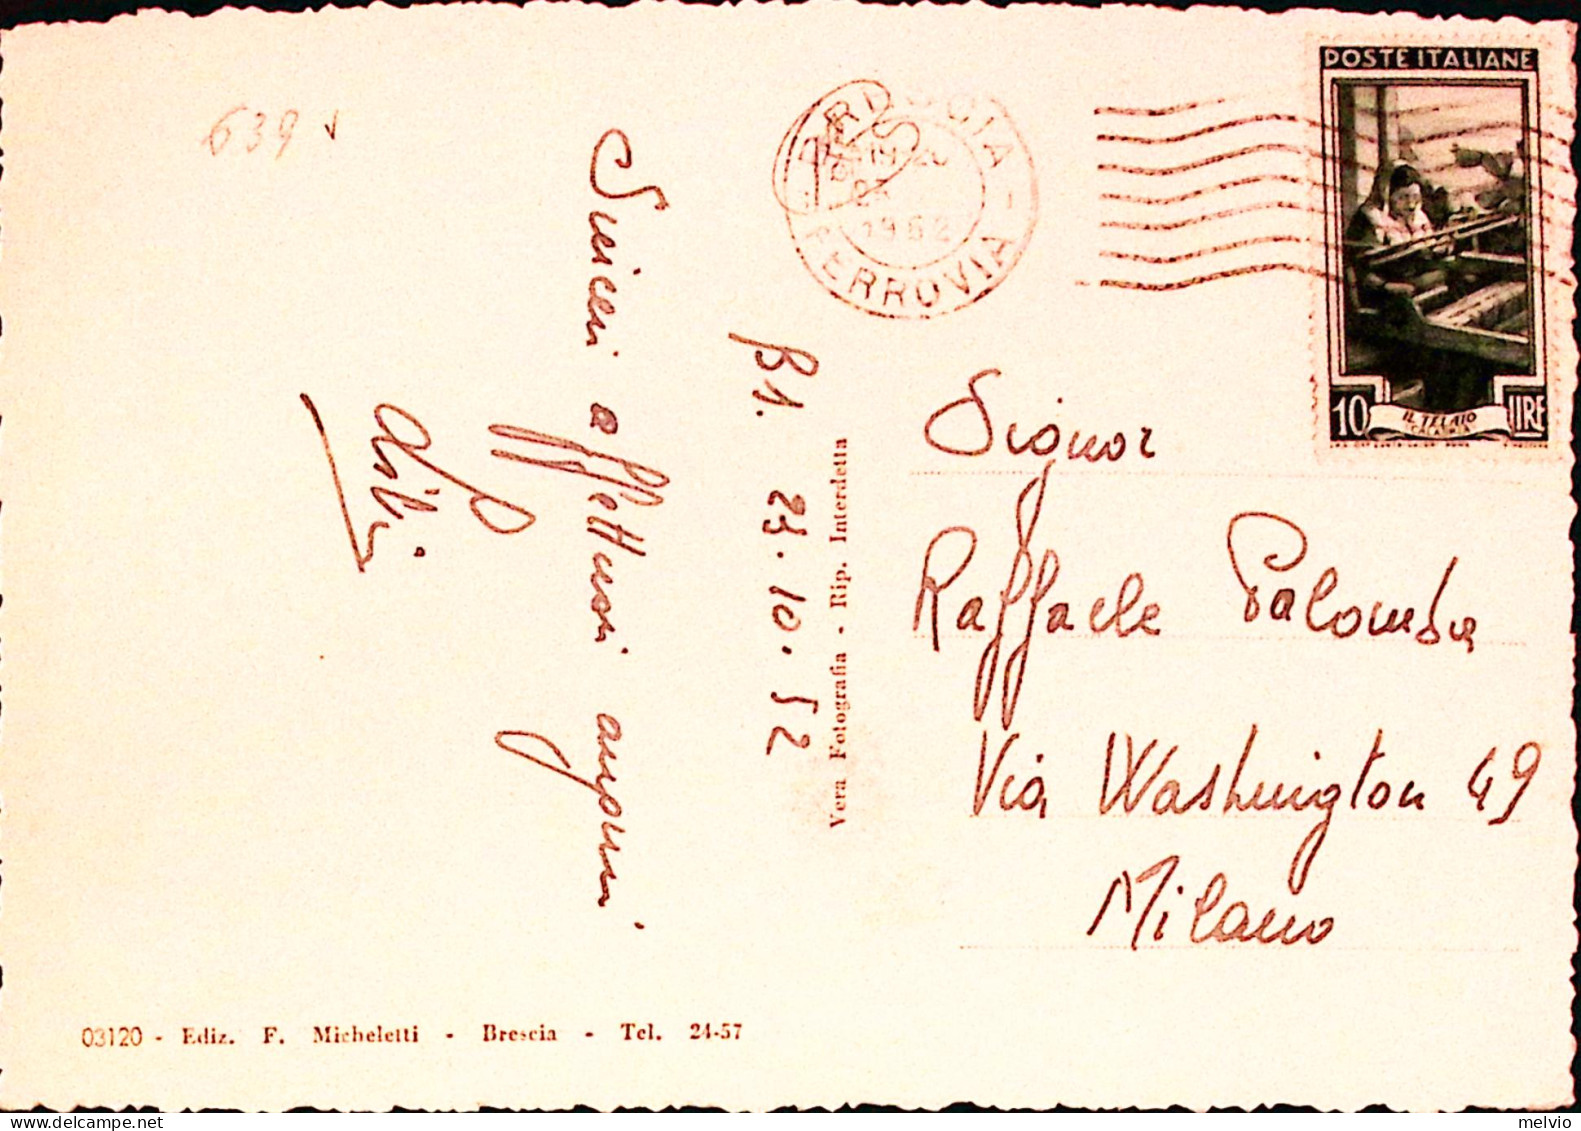 639
BRESCIA - FERROVIA
1952
POSTE ITALIANE
10
IL TELAIO
LIRE
BS. 23.10.52
Sinceri affettuosi auguri
Signor
Raffaele Palomba
Via Washington 49
Milano
Vera Fotografia - Rip. Interdetta
03120 - Ediz. F. Micheletti - Brescia - Tel. 24-57
melvio